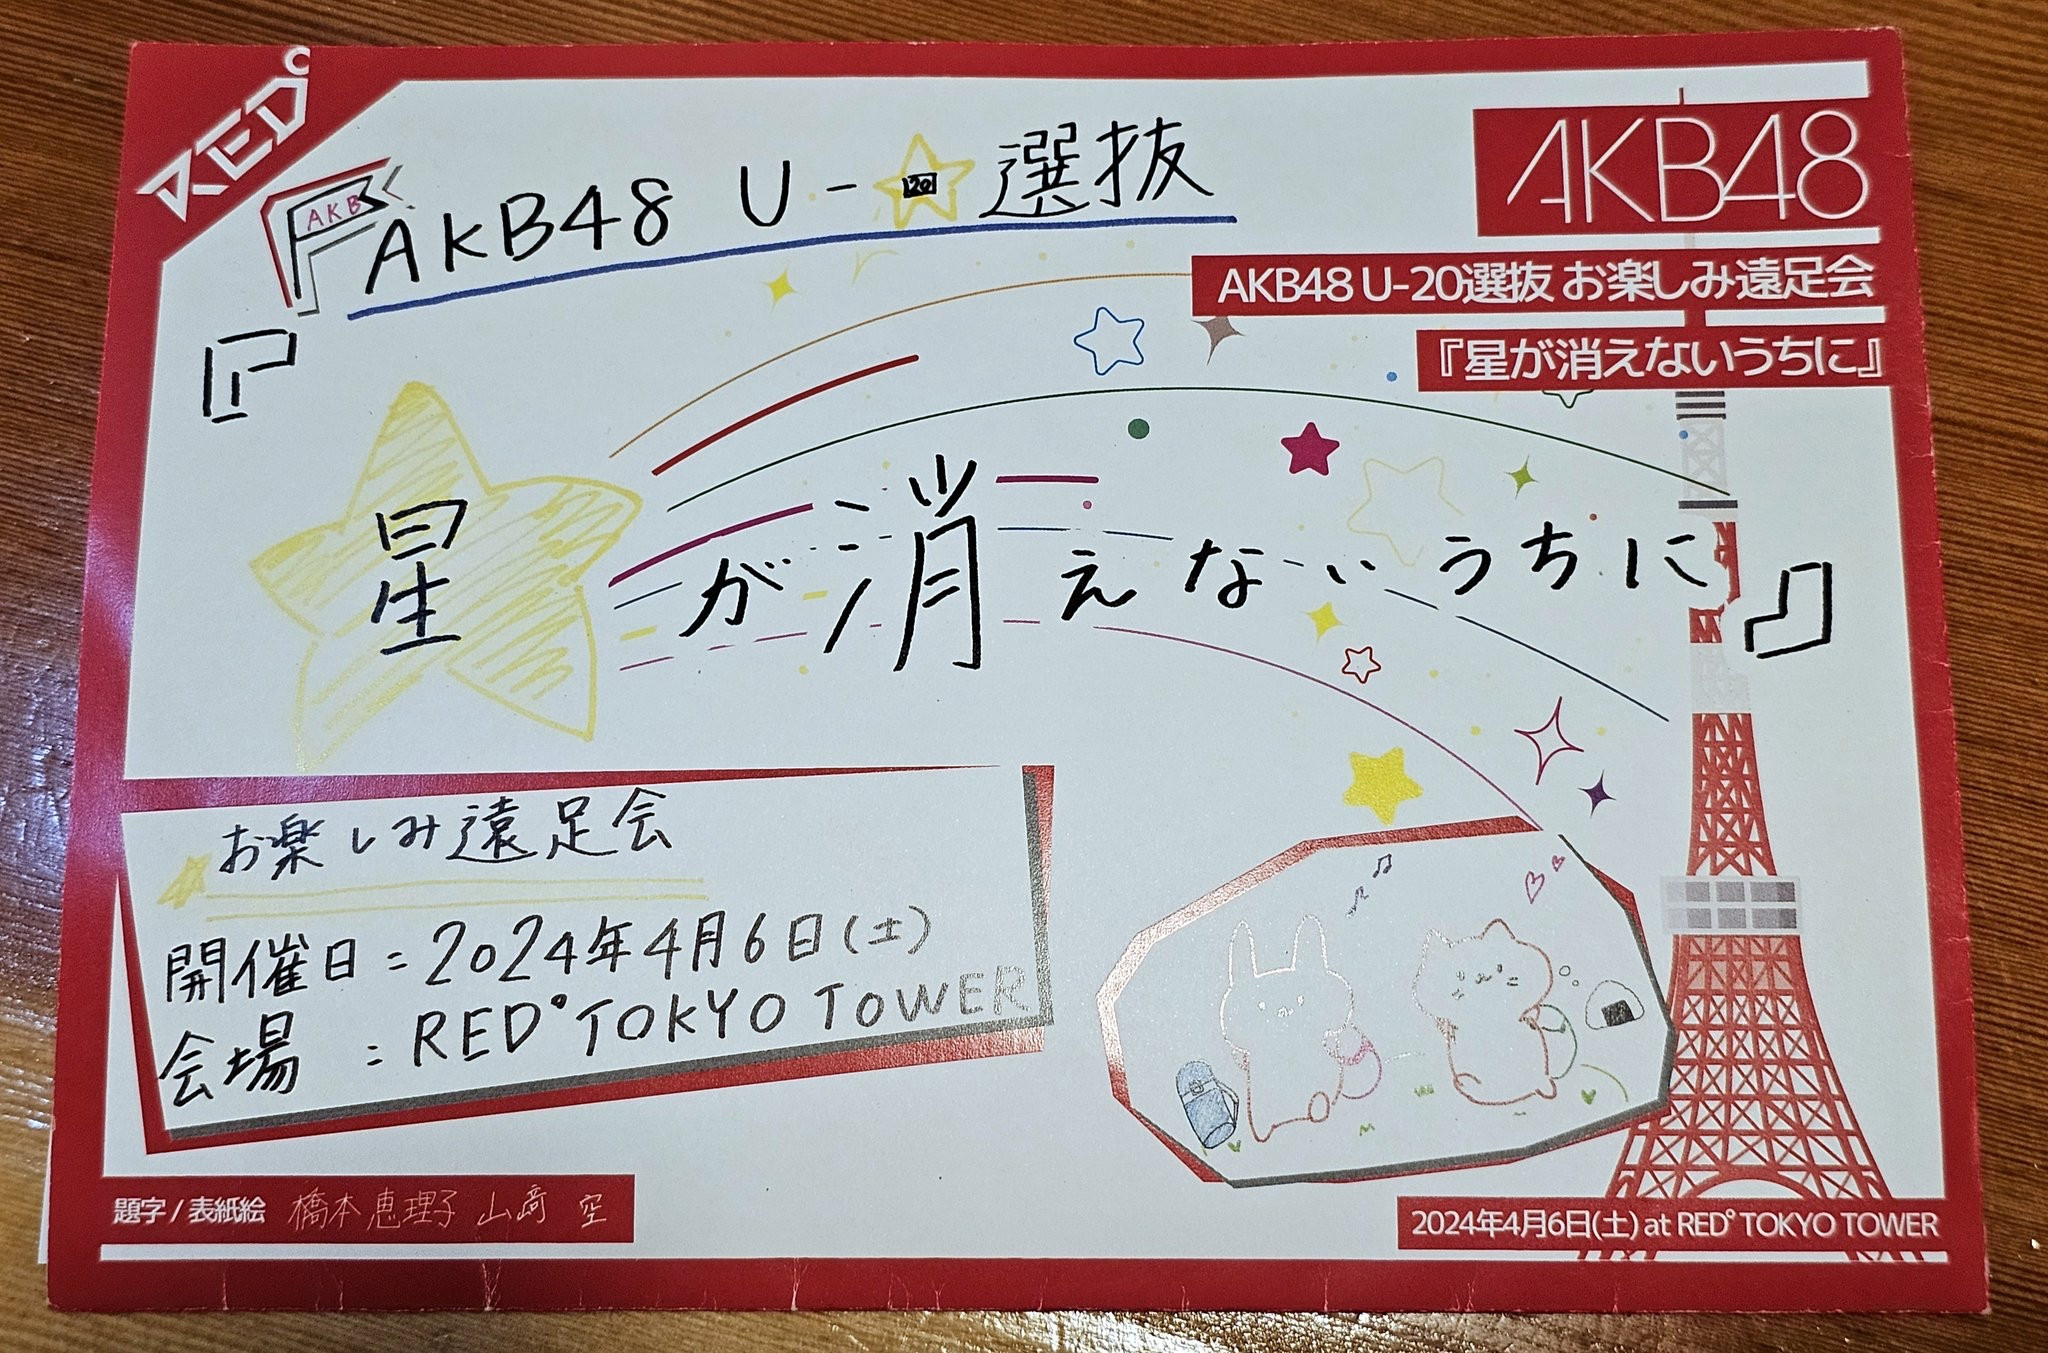 RED°
AKB
AKB48 U-20選抜
AKB48
AKB48 U-20選抜 お楽しみ遠足会
『星が消えないうちに』
『星が消えないうちに』
お楽しみ遠足会
開催日:2024年4月6日(土)
会場:RED°TOKYO TOWER
題字/表紙絵 橋本恵理子 山﨑 空
2024年4月6日(土) at RED° TOKYO TOWER